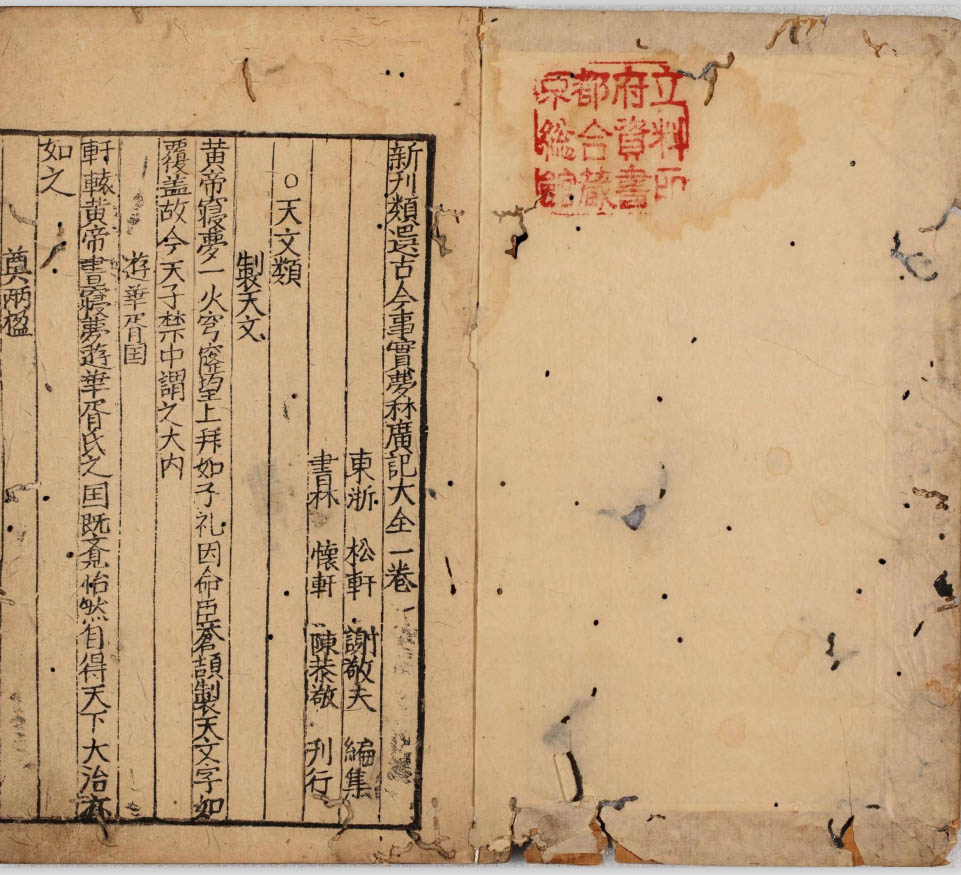 京都府立
総合資料
館藏書印
新刊類選古今事實夢林廣記大全一卷
東浙 松軒 謝敬夫 編集
書林 懐軒 陳恭敬 刊行
○天文類
製天文
黄帝寝夢一火穹窿望上拜如子礼因命臣蒼頡製天文字如
覆盖故今天子禁中謂之大内
遊華胥国
軒轅黄帝晝寝夢遊華胥氏之国既寤怡然自得天下大治亦
如之
奠兩楹